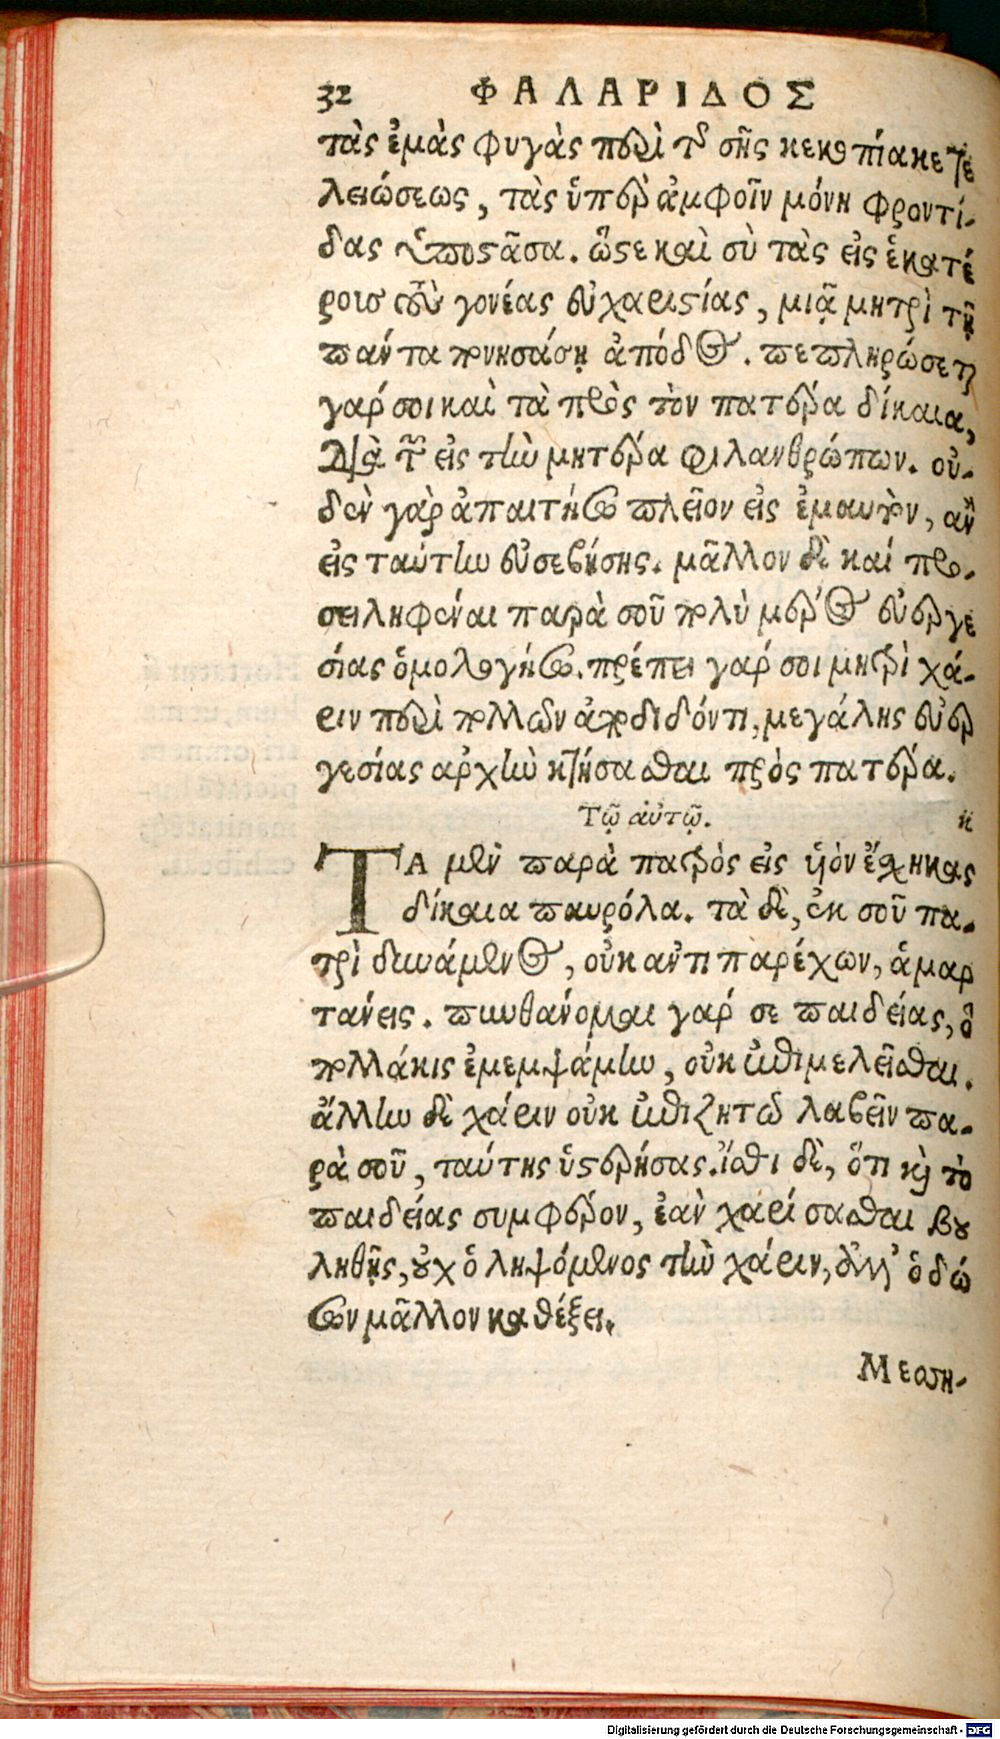 32 ΦΑΛΑΡΙΔΟΣ
τὰς ἐμὰς φυγὰς περὶ τῆς σῆς κεκοπίακε τε
λειώσεως, τὰς ὑπὲρ ἀμφοῖν μόνη φροντί-
δας ὑποστᾶσα. ὥστε καὶ σὺ τὰς εἰς ἑκατέ
ροισ τοὺς γονέας εὐχαριστίας, μιᾷ μητρὶ τῇ
πάντα πονησάσῃ ἀπόδος. πεπληρώσεται
γάρ σοι καὶ τὰ πρὸς τὸν πατέρα δίκαια,
διὰ τῶν εἰς τὴν μητέρα φιλανθρώπων. οὐ-
δὲν γὰρ ἀπαιτήσω πλεῖον εἰς ἐμαυτὸν, ἂν
εἰς ταύτην εὐσεβήσης. μᾶλλον δὲ καί προ-
σειληφέναι παρὰ σοῦ πολὺ μέρος εὐεργε
σίας ὁμολογήσω. πρέπει γάρ σοι μητρὶ χά-
ριν περὶ πολλῶν ἀποδιδόντι, μεγάλης εὐερ
γεσίας αρχὴν κτήσασθαι πρὸς πατέρα.
Τῷ αὐτῷ. κ
ΤΑ μὲν παρὰ πατρὸς εἰς υἱὸν ἔσχηκας
δίκαια παυρόλα. τὰ δὲ, ἐκ σοῦ πα-
τρὶ δυνάμενος, οὐκ αντιπαρέχων, ἁμαρ
τανεις. πυνθάνομαι γάρ σε παιδείας, ὃ
πολλάκις ἐμεμψάμην, οὐκ ἐπιμελεῖσθαι.
ἄλλην δὲ χάριν οὐκ ἐπιζητῶ λαβεῖν πα-
ρὰ σοῦ, ταύτης ὑστερήσας. ἴσθι δὲ, ὅτι καὶ τὸ
παιδείας συμφέρον, ἐὰν χαρίσασθαι βου
ληθῇς, οὐχ ὁ ληψόμενος τὴν χάριν, ἀλλ' ὁ δώ
σων μᾶλλον καθέξει.
Μεση-
Digitalisierung gefördert durch die Deutsche Forschungsgemeinschaft - DFG